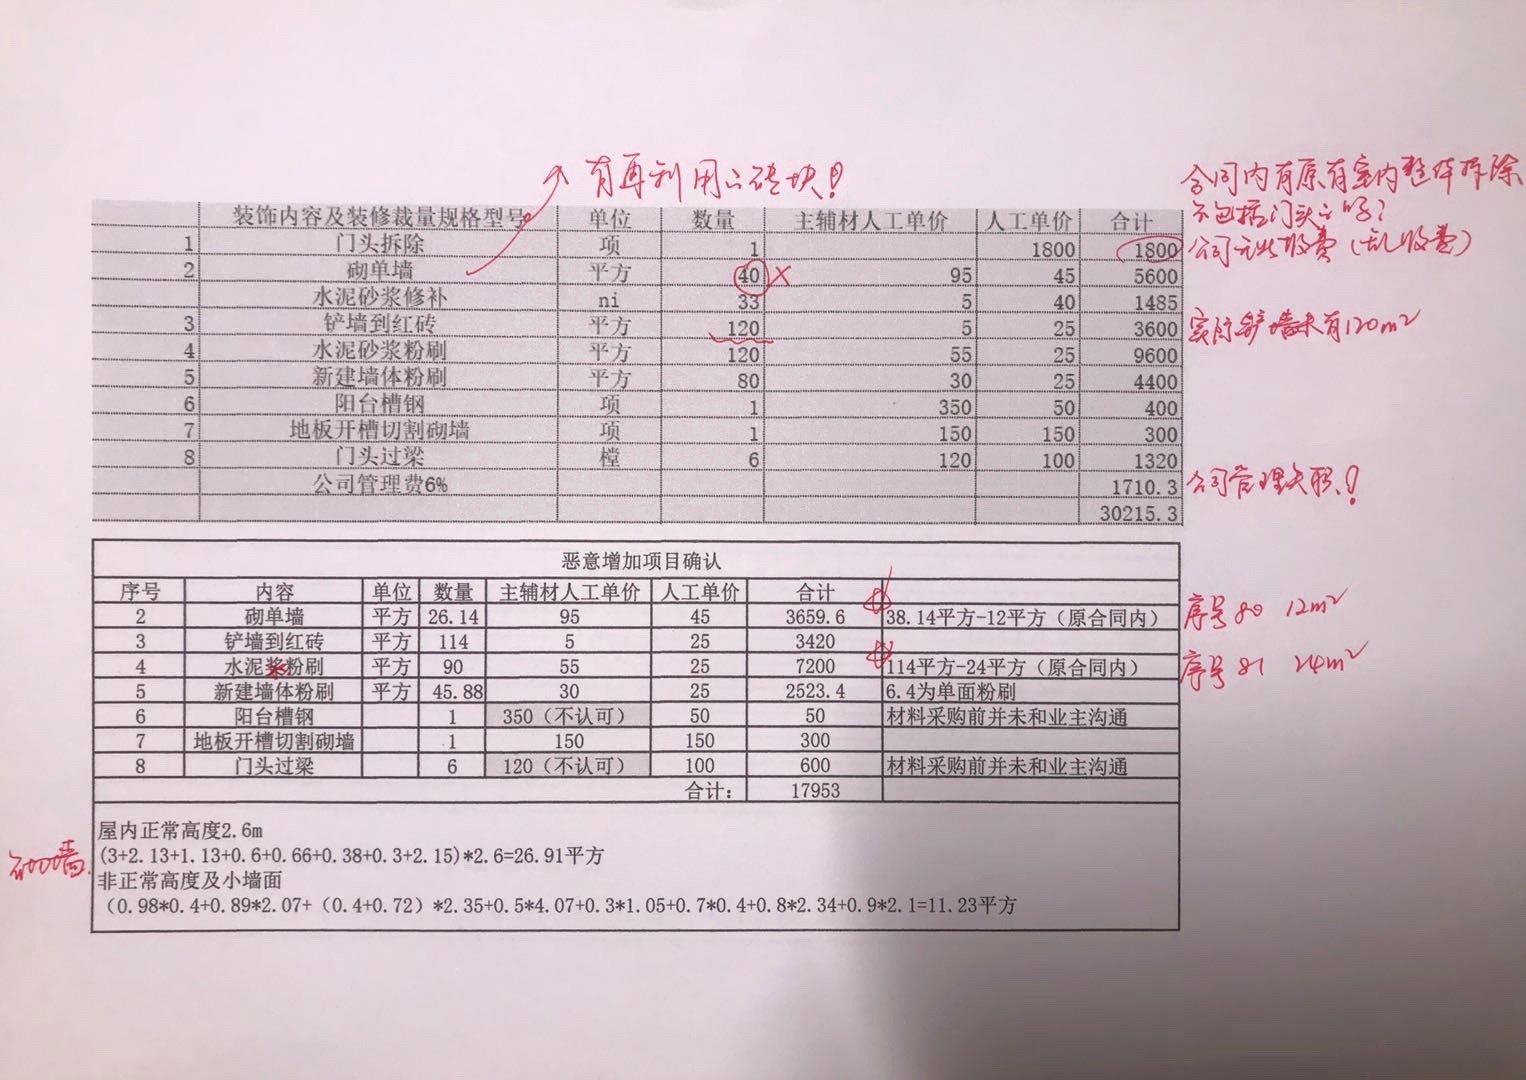 有再利用的砖块！
合同内有原有室内整体拆除
不包括门头的吗？
公司无此收费（乱收费）
装饰内容及装修裁量规格型号 单位 数量 主辅材人工单价 人工单价 合计
1 门头拆除 项 1 1800 1800
2 砌单墙 平方 40 × 95 45 5600
水泥砂浆修补 ni 33 5 40 1485
3 铲墙到红砖 平方 120 5 25 3600 实际铲墙未有120m²
4 水泥砂浆粉刷 平方 120 55 25 9600
5 新建墙体粉刷 平方 80 30 25 4400
6 阳台槽钢 项 1 350 50 400
7 地板开槽切割砌墙 项 1 150 150 300
8 门头过梁 樘 6 120 100 1320
公司管理费6% 1710.3 公司管理失职！
30215.3
恶意增加项目确认
序号 内容 单位 数量 主辅材人工单价 人工单价 合计
2 砌单墙 平方 26.14 95 45 3659.6 38.14平方-12平方（原合同内） 序号80 12m²
3 铲墙到红砖 平方 114 5 25 3420
4 水泥浆粉刷 平方 90 55 25 7200 114平方-24平方（原合同内） 序号81 24m²
5 新建墙体粉刷 平方 45.88 30 25 2523.4 6.4为单面粉刷
6 阳台槽钢 1 350（不认可） 50 50 材料采购前并未和业主沟通
7 地板开槽切割砌墙 1 150 150 300
8 门头过梁 6 120（不认可） 100 600 材料采购前并未和业主沟通
合计： 17953
屋内正常高度2.6m
砌墙. (3+2.13+1.13+0.6+0.66+0.38+0.3+2.15)*2.6=26.91平方
非正常高度及小墙面
（0.98*0.4+0.89*2.07+（0.4+0.72）*2.35+0.5*4.07+0.3*1.05+0.7*0.4+0.8*2.34+0.9*2.1=11.23平方